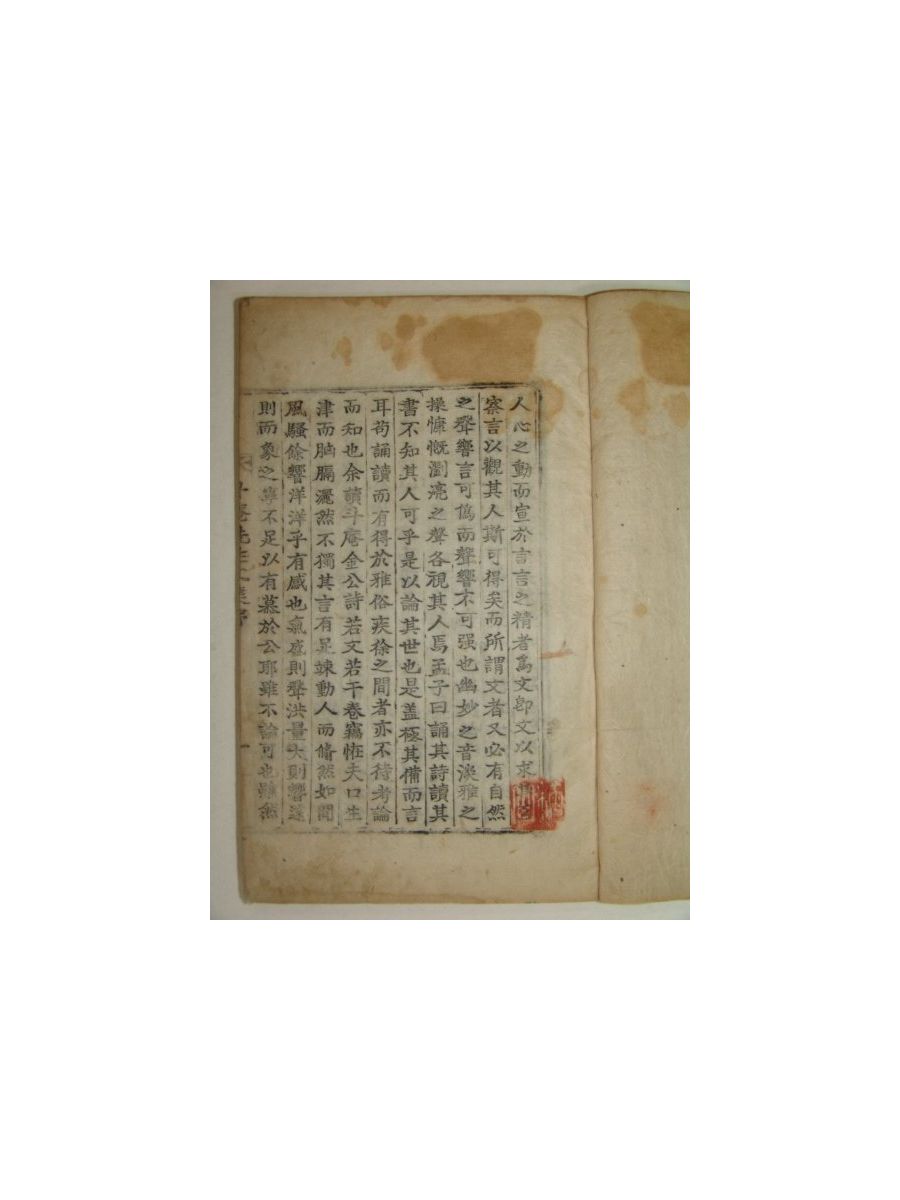 人心之動而宣於言言之精者爲文卽文以求
察言以觀其人斯可得矣而所謂文者又必有自然
之聲響言可僞而聲響不可强也幽妙之音淡雅之
操慷慨瀏亮之聲各視其人焉孟子曰誦其詩讀其
書不知其人可乎是以論其世也是盖極其備而言
耳苟誦讀而有得於雅俗疾徐之間者亦不待考論
而知也余讀斗庵金公詩若文若干卷竊恠夫口生
津而胸膈灑然不獨其言有足竦動人而脩然如聞
風騷餘響洋洋乎有感也氣盛則聲洪量大則響遠
則而象之專不足以有慕於公耶雖不論可也雖然
斗庵先生文集序
一